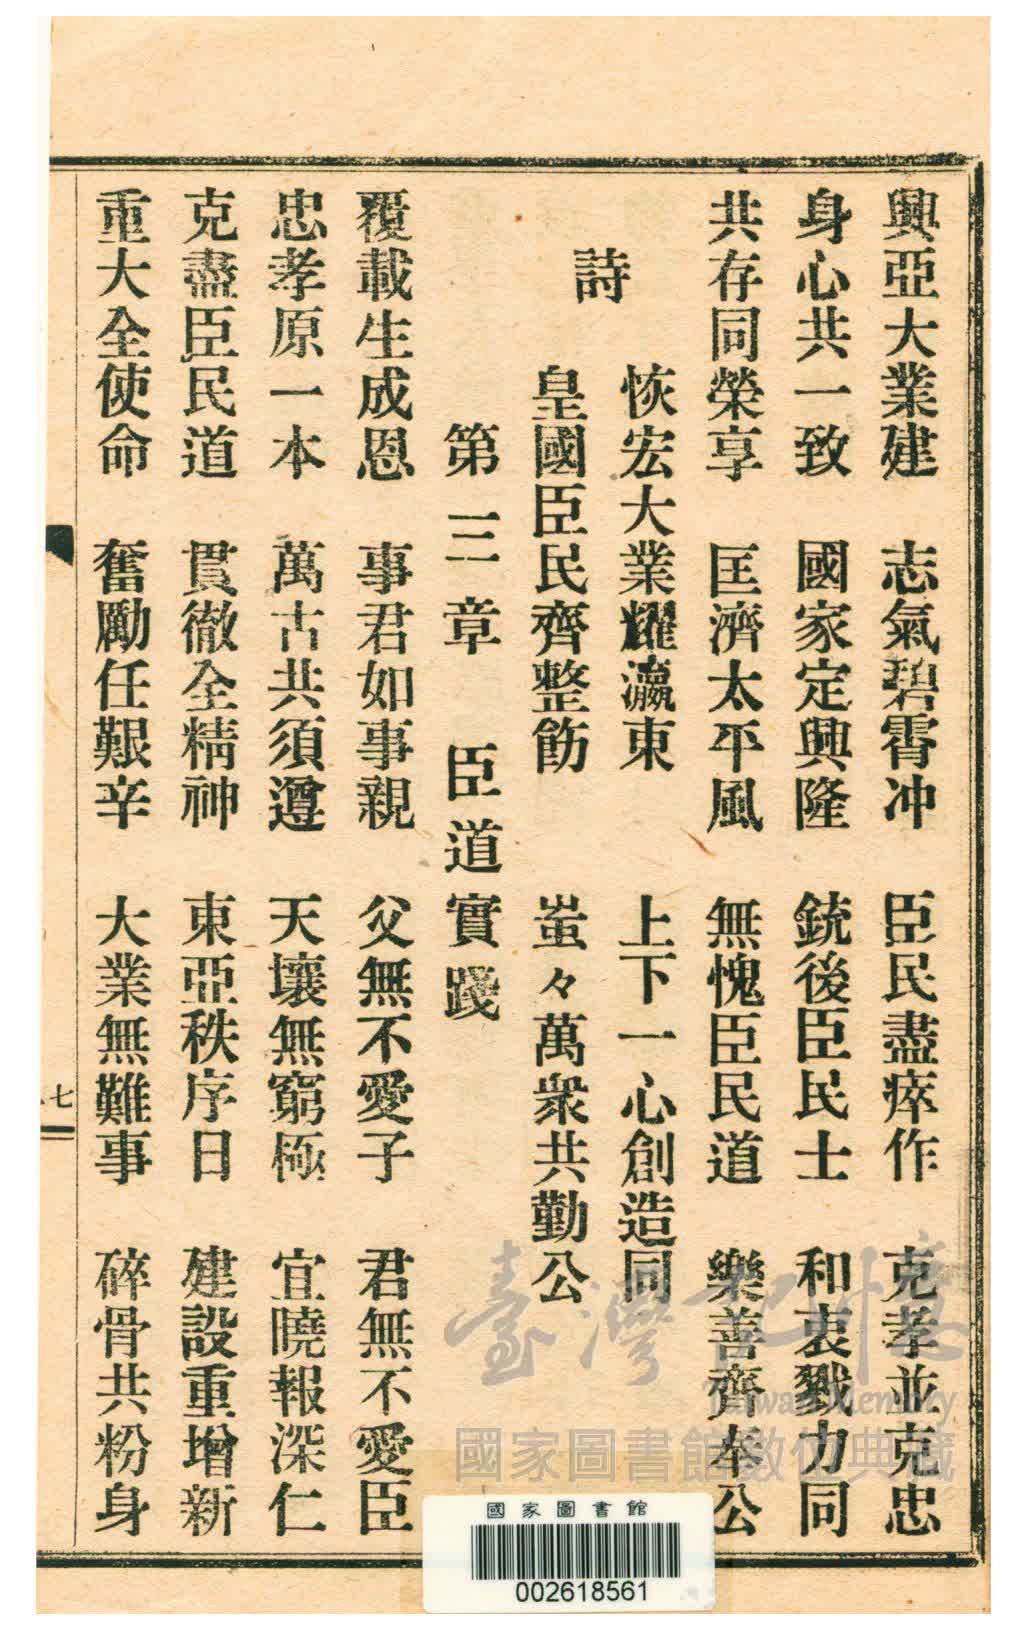 興亞大業建　志氣碧霄冲　臣民盡瘁作　克孝並克忠
身心共一致　國家定興隆　銃後臣民士　和衷戮力同
共存同榮享　匡濟太平風　無愧臣民道　樂善齊奉公
詩
恢宏大業耀瀛東　上下一心創造同
皇國臣民齊整飭　蚩々萬衆共勤公
第三章　臣道實踐
覆載生成恩　事君如事親　父無不愛子　君無不愛臣
忠孝原一本　萬古共須遵　天壤無窮極　宜曉報深仁
克盡臣民道　貫徹全精神　東亞秩序日　建設重增新
重大全使命　奮勵任艱辛　大業無難事　碎骨共粉身
七
臺灣記憶
Taiwan Memory
國家圖書館數位典藏
國家圖書館
002618561